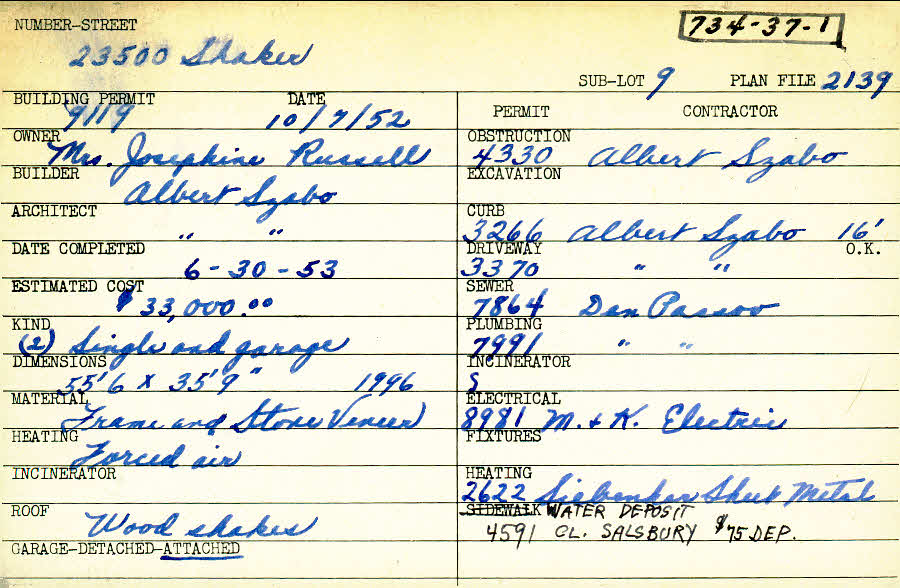 NUMBER-STREET
734-37-1
23500 Shaker
SUB-LOT 9 PLAN FILE 2139
BUILDING PERMIT DATE
9119 10/7/52
OWNER
Mrs. Josephine Russell
BUILDER
Albert Szabo
ARCHITECT
" "
DATE COMPLETED
6-30-53
ESTIMATED COST
$ 33,000.00
KIND
(2) Single and garage
DIMENSIONS
55'6 x 35'9" 1996
MATERIAL
Frame and Stone Veneer
HEATING
Forced air
INCINERATOR
ROOF
Wood shakes
GARAGE-DETACHED-ATTACHED
PERMIT CONTRACTOR
OBSTRUCTION
4330 Albert Szabo
EXCAVATION
CURB
3266 Albert Szabo 16'
DRIVEWAY O.K.
3370 " "
SEWER
7864 Dan
PLUMBING
7991 " "
INCINERATOR
ELECTRICAL
8981 M. & K. Electric
FIXTURES
HEATING
2622 Siebenker Sheet Metal
SIDEWALK WATER DEPOSIT
4591 CL. SALSBURY $75 DEP.